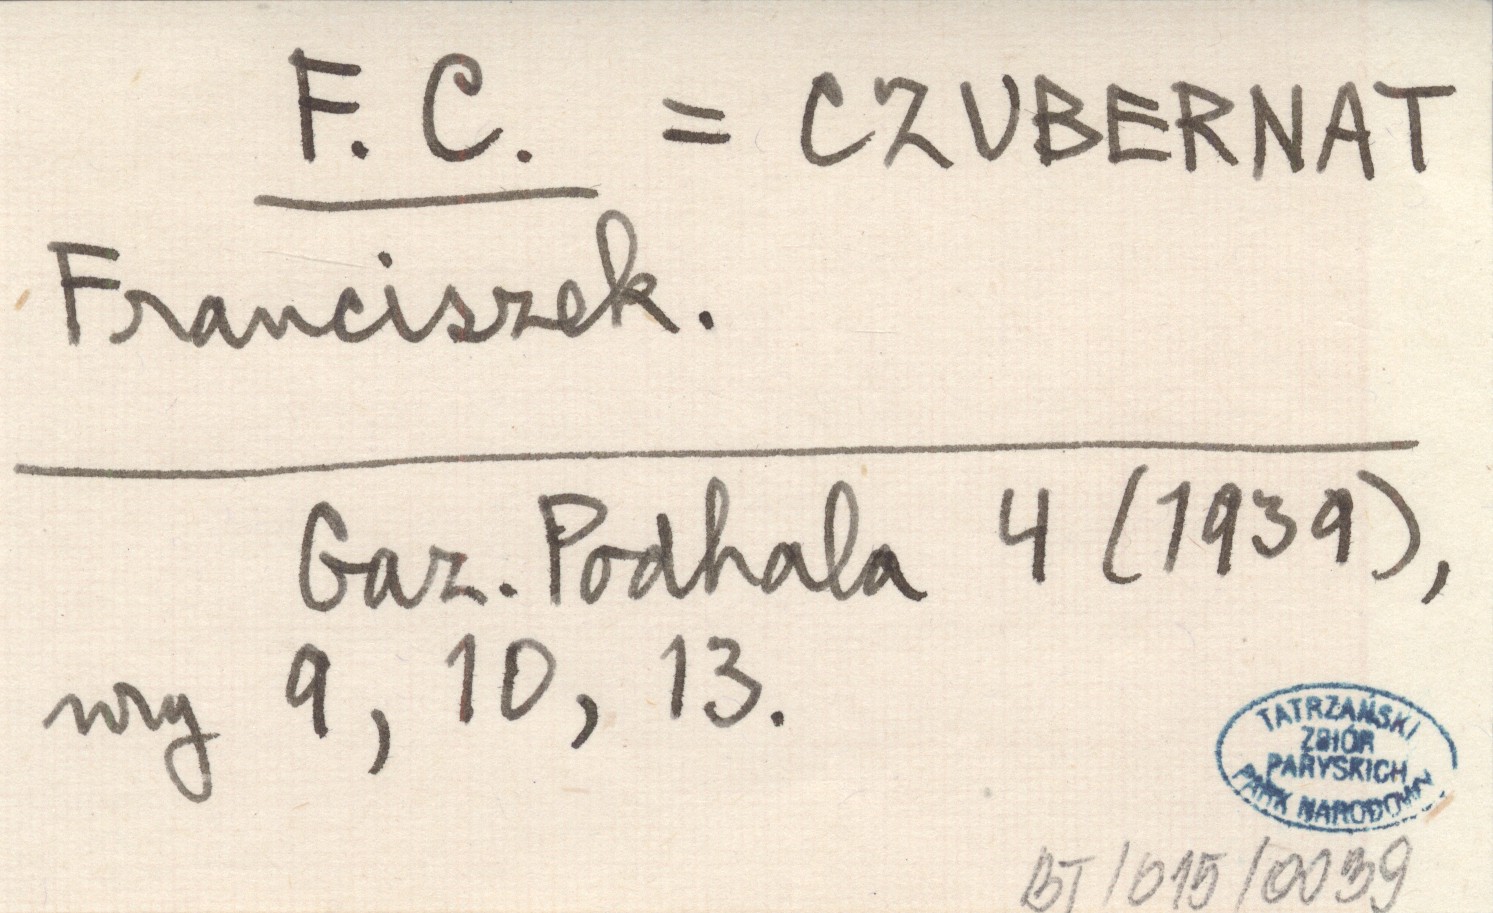 F. C. = CZUBERNAT
Franciszek.
Gaz. Podhala 4 (1939),
nry 9, 10, 13.
TATRZAŃSKI
ZBIÓR
PARYSKICH
PARK NARODOWY
BT/015/0039